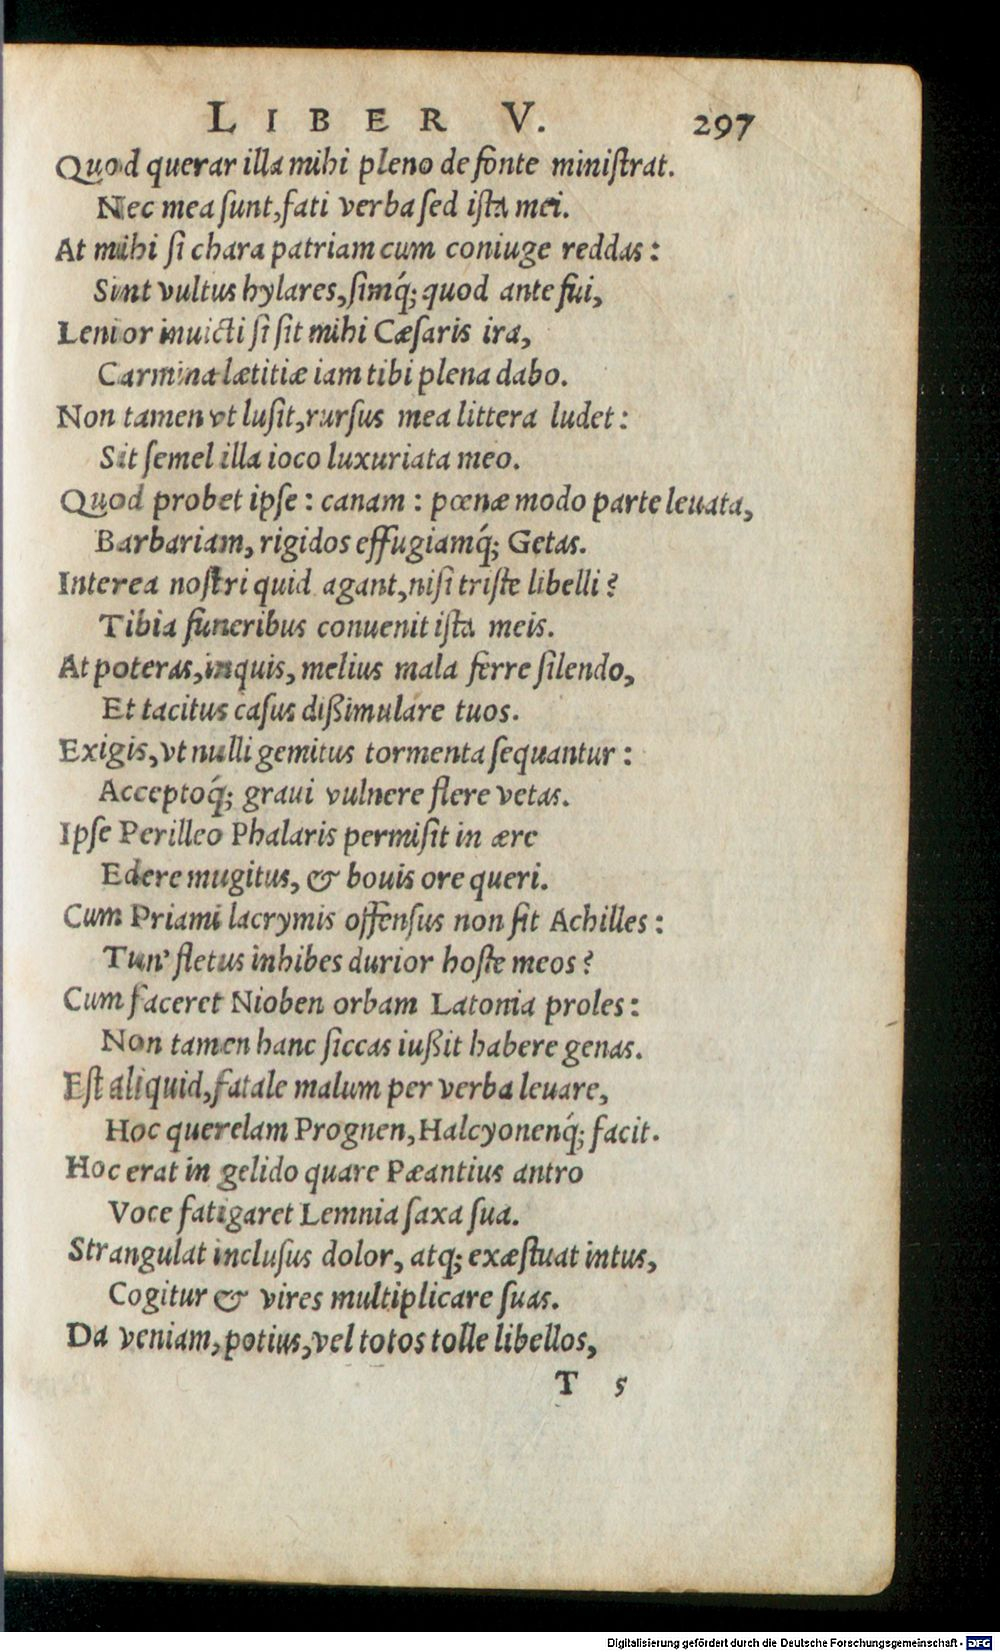 LIBER V. 297
Quod querar illa mihi pleno de fonte miniſtrat.
Nec mea ſunt, fati verba ſed iſta mei.
At mihi ſi chara patriam cum coniuge reddas:
Sint vultus hylares, ſimq́; quod ante fui,
Lenior inuicti ſi ſit mihi Cæſaris ira,
Carmina lætitiæ iam tibi plena dabo.
Non tamen vt luſit, rurſus mea littera ludet:
Sit ſemel illa ioco luxuriata meo.
Quod probet ipſe: canam: pœnæ modo parte leuata,
Barbariam, rigidos effugiamq́; Getas.
Interea noſtri quid agant, niſi triſte libelli?
Tibia funeribus conuenit iſta meis.
At poteras, inquis, melius mala ferre ſilendo,
Et tacitus caſus dißimulare tuos.
Exigis, vt nulli gemitus tormenta ſequantur:
Acceptoq́; graui vulnere flere vetas.
Ipſe Perilleo Phalaris permiſit in ære
Edere mugitus, & bouis ore queri.
Cum Priami lacrymis offenſus non ſit Achilles:
Tun' fletus inhibes durior hoſte meos?
Cum faceret Nioben orbam Latonia proles:
Non tamen hanc ſiccas iußit habere genas.
Eſt aliquid, fatale malum per verba leuare,
Hoc querelam Prognen, Halcyonenq́; facit.
Hoc erat in gelido quare Pæantius antro
Voce fatigaret Lemnia ſaxa ſua.
Strangulat incluſus dolor, atq; exæſtuat intus,
Cogitur & vires multiplicare ſuas.
Da veniam, potius, vel totos tolle libellos,
T 5
Digitalisierung gefördert durch die Deutsche Forschungsgemeinschaft - DFG